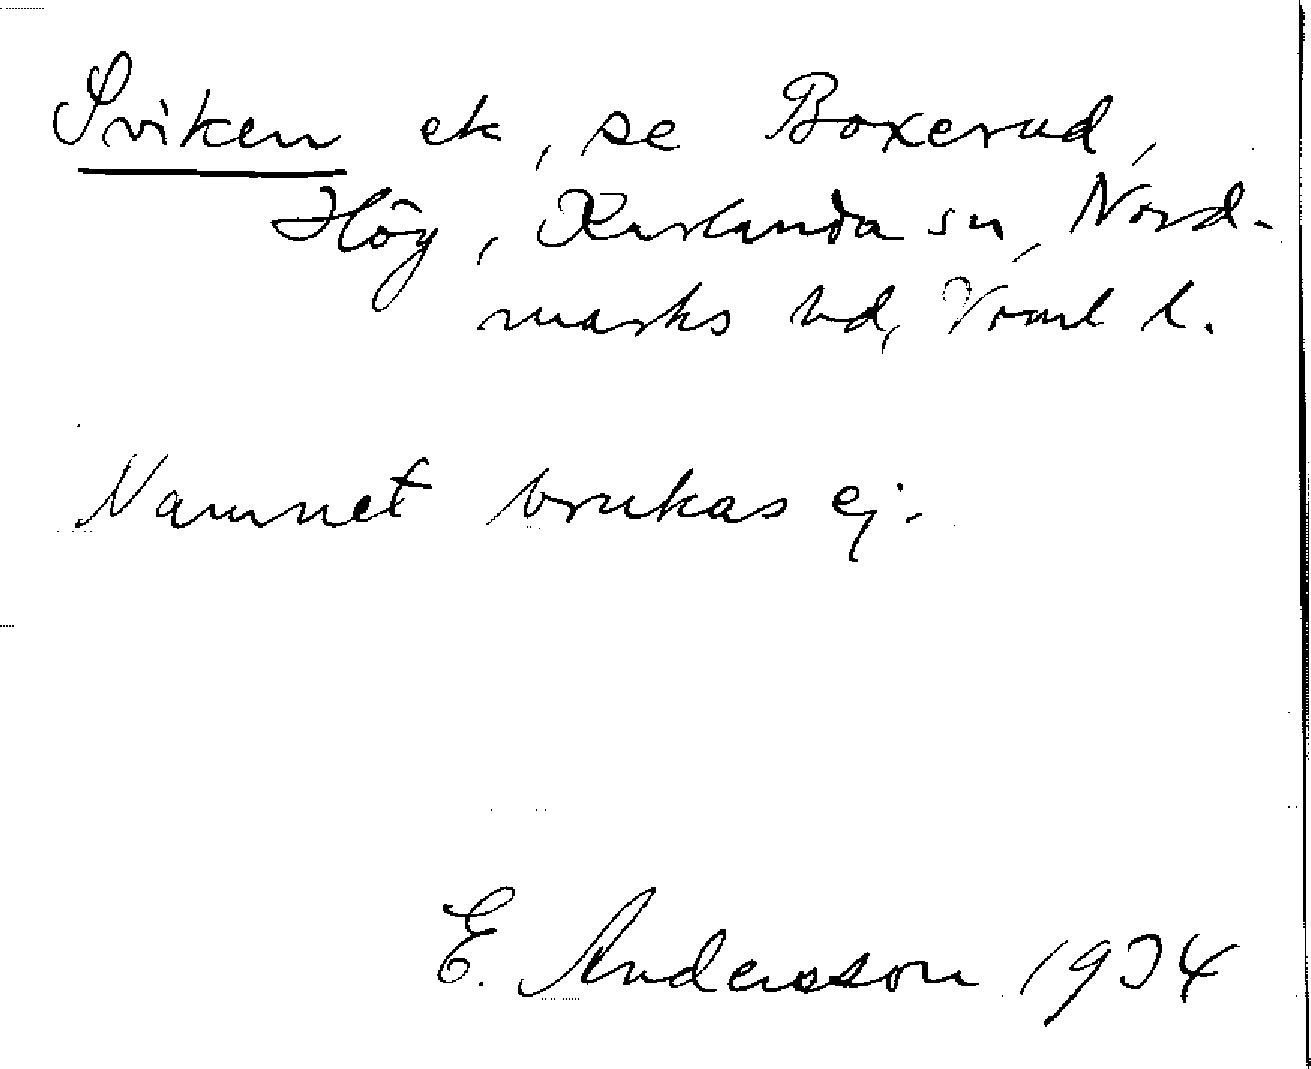 Sviken ek, se Boxerud,
Hög, Karlanda sn, Nord-
marks hd, Värml l.
Namnet brukas ej.
E. Andersson 1934